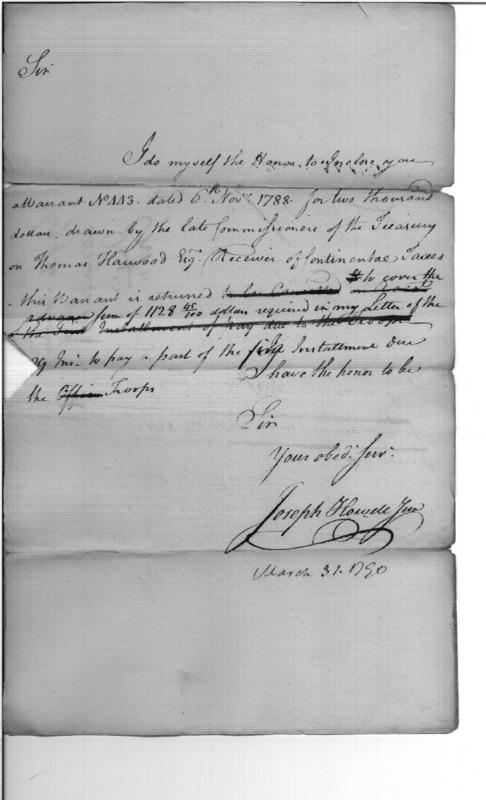 Sir
I do myself the Honor to Inclose you
a Warrant No 443. dated 6th Novr. 1788. for two thousand
dollars. drawn by the late Commissioners of the Treasury
on Thomas Harwood Esqr. Receiver of Continental Taxes
this Warrant is returned to be to cover the
advance sum of 1128 dollars required in my Letter of the
the Installment of Pay due to the Troops
29 Inst. to pay a part of the Installment due
the Officers Troops
I have the honor to be
Sir
Your obedt. Servt.
Joseph Howell Junr
March 31. 1790